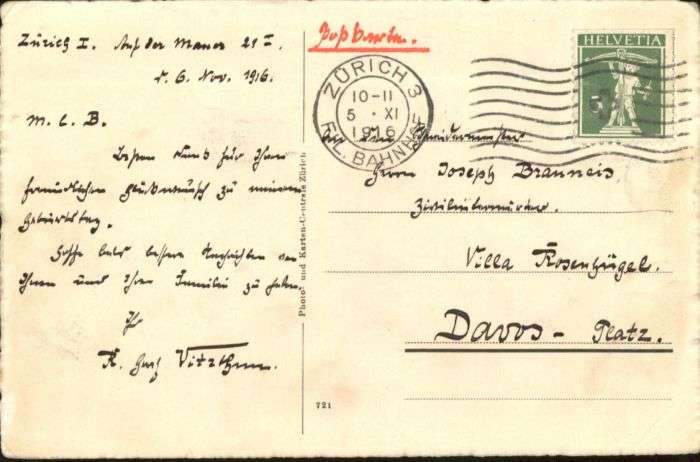 Zürich I. Auf der Mauer 21 I.
d. 6. Nov. 1916.
M. l. B.
Besten Dank für Ihren
freundlichen Glückwunsch zu meinem
Geburtstag.
Hoffe bald bessere Nachrichten von
Ihnen und Ihrer Familie zu haben.
Ihr
K. Graf Vitzthum.
Photo- und Karten-Centrale Zürich
721
Postkarte.
ZÜRICH 3
10-11
5 · XI
1916
FIL. BAHNHOF
HELVETIA
5
An den
Herrn Joseph Brauneis
Villa Rosenhügel.
Davos-Platz.